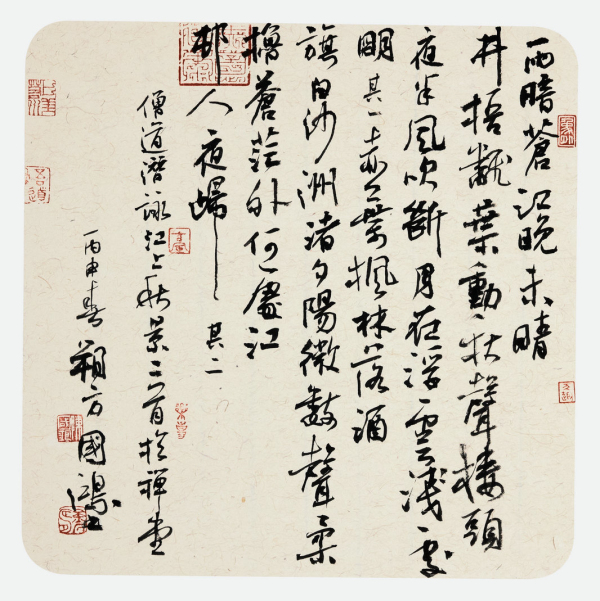 雨暗蒼江晚未晴
井梧翻葉動秋聲樓頭
夜半風吹斷月在浮雲淺處
明其一赤葉楓林落酒
旗白沙洲渚夕陽微數聲柔
櫓蒼茫外何處江
邨人夜歸其二
僧道潛詠江上秋景二首於禪堂
丙申春朔方國鴻